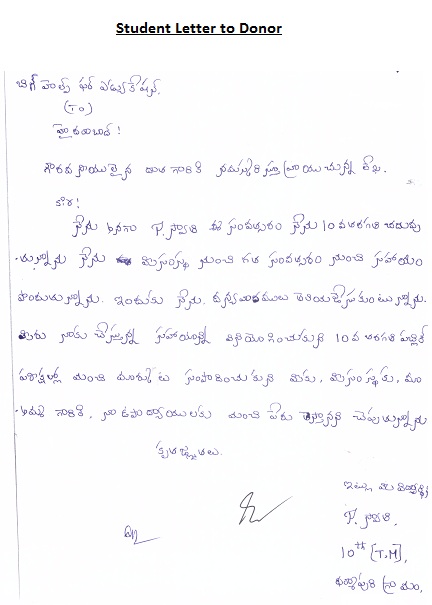 Student Letter to Donor
బిగ్ హెల్ప్ ఫర్ ఎడ్యుకేషన్,
(TO)
హైదరాబాద్ !
గౌరవనీయులైన దాత గారికి నమస్కరిస్తూ వ్రాయుచున్న లేఖ.
నేను అనగా P. స్వాతి ఈ సంవత్సరం నేను 10 వ తరగతి చదువు
-చున్నాను నేను మీ సంస్థ నుంచి గత సంవత్సరం నుంచి సహాయం
పొందుచున్నాను. ఇందుకు నేను. ధన్యవాదములు తెలియచేసుకుంటున్నాను.
మీరు నాకు చేస్తున్న సహాయాన్ని వినియోగించుకుని 10 వ తరగతి పబ్లిక్
పరీక్షల్లో మంచి మార్కులు సంపాదించుకుని మీకు, మీ సంస్థకు, మా
అమ్మ గారికి, నా ఉపాధ్యాయులకు మంచి పేరు తెస్తానని చెపుతున్నాను
కృతజ్ఞతలు.
ఇట్లు మీ విద్యార్థి
P. స్వాతి,
10th [T.M],
గ్రామం,